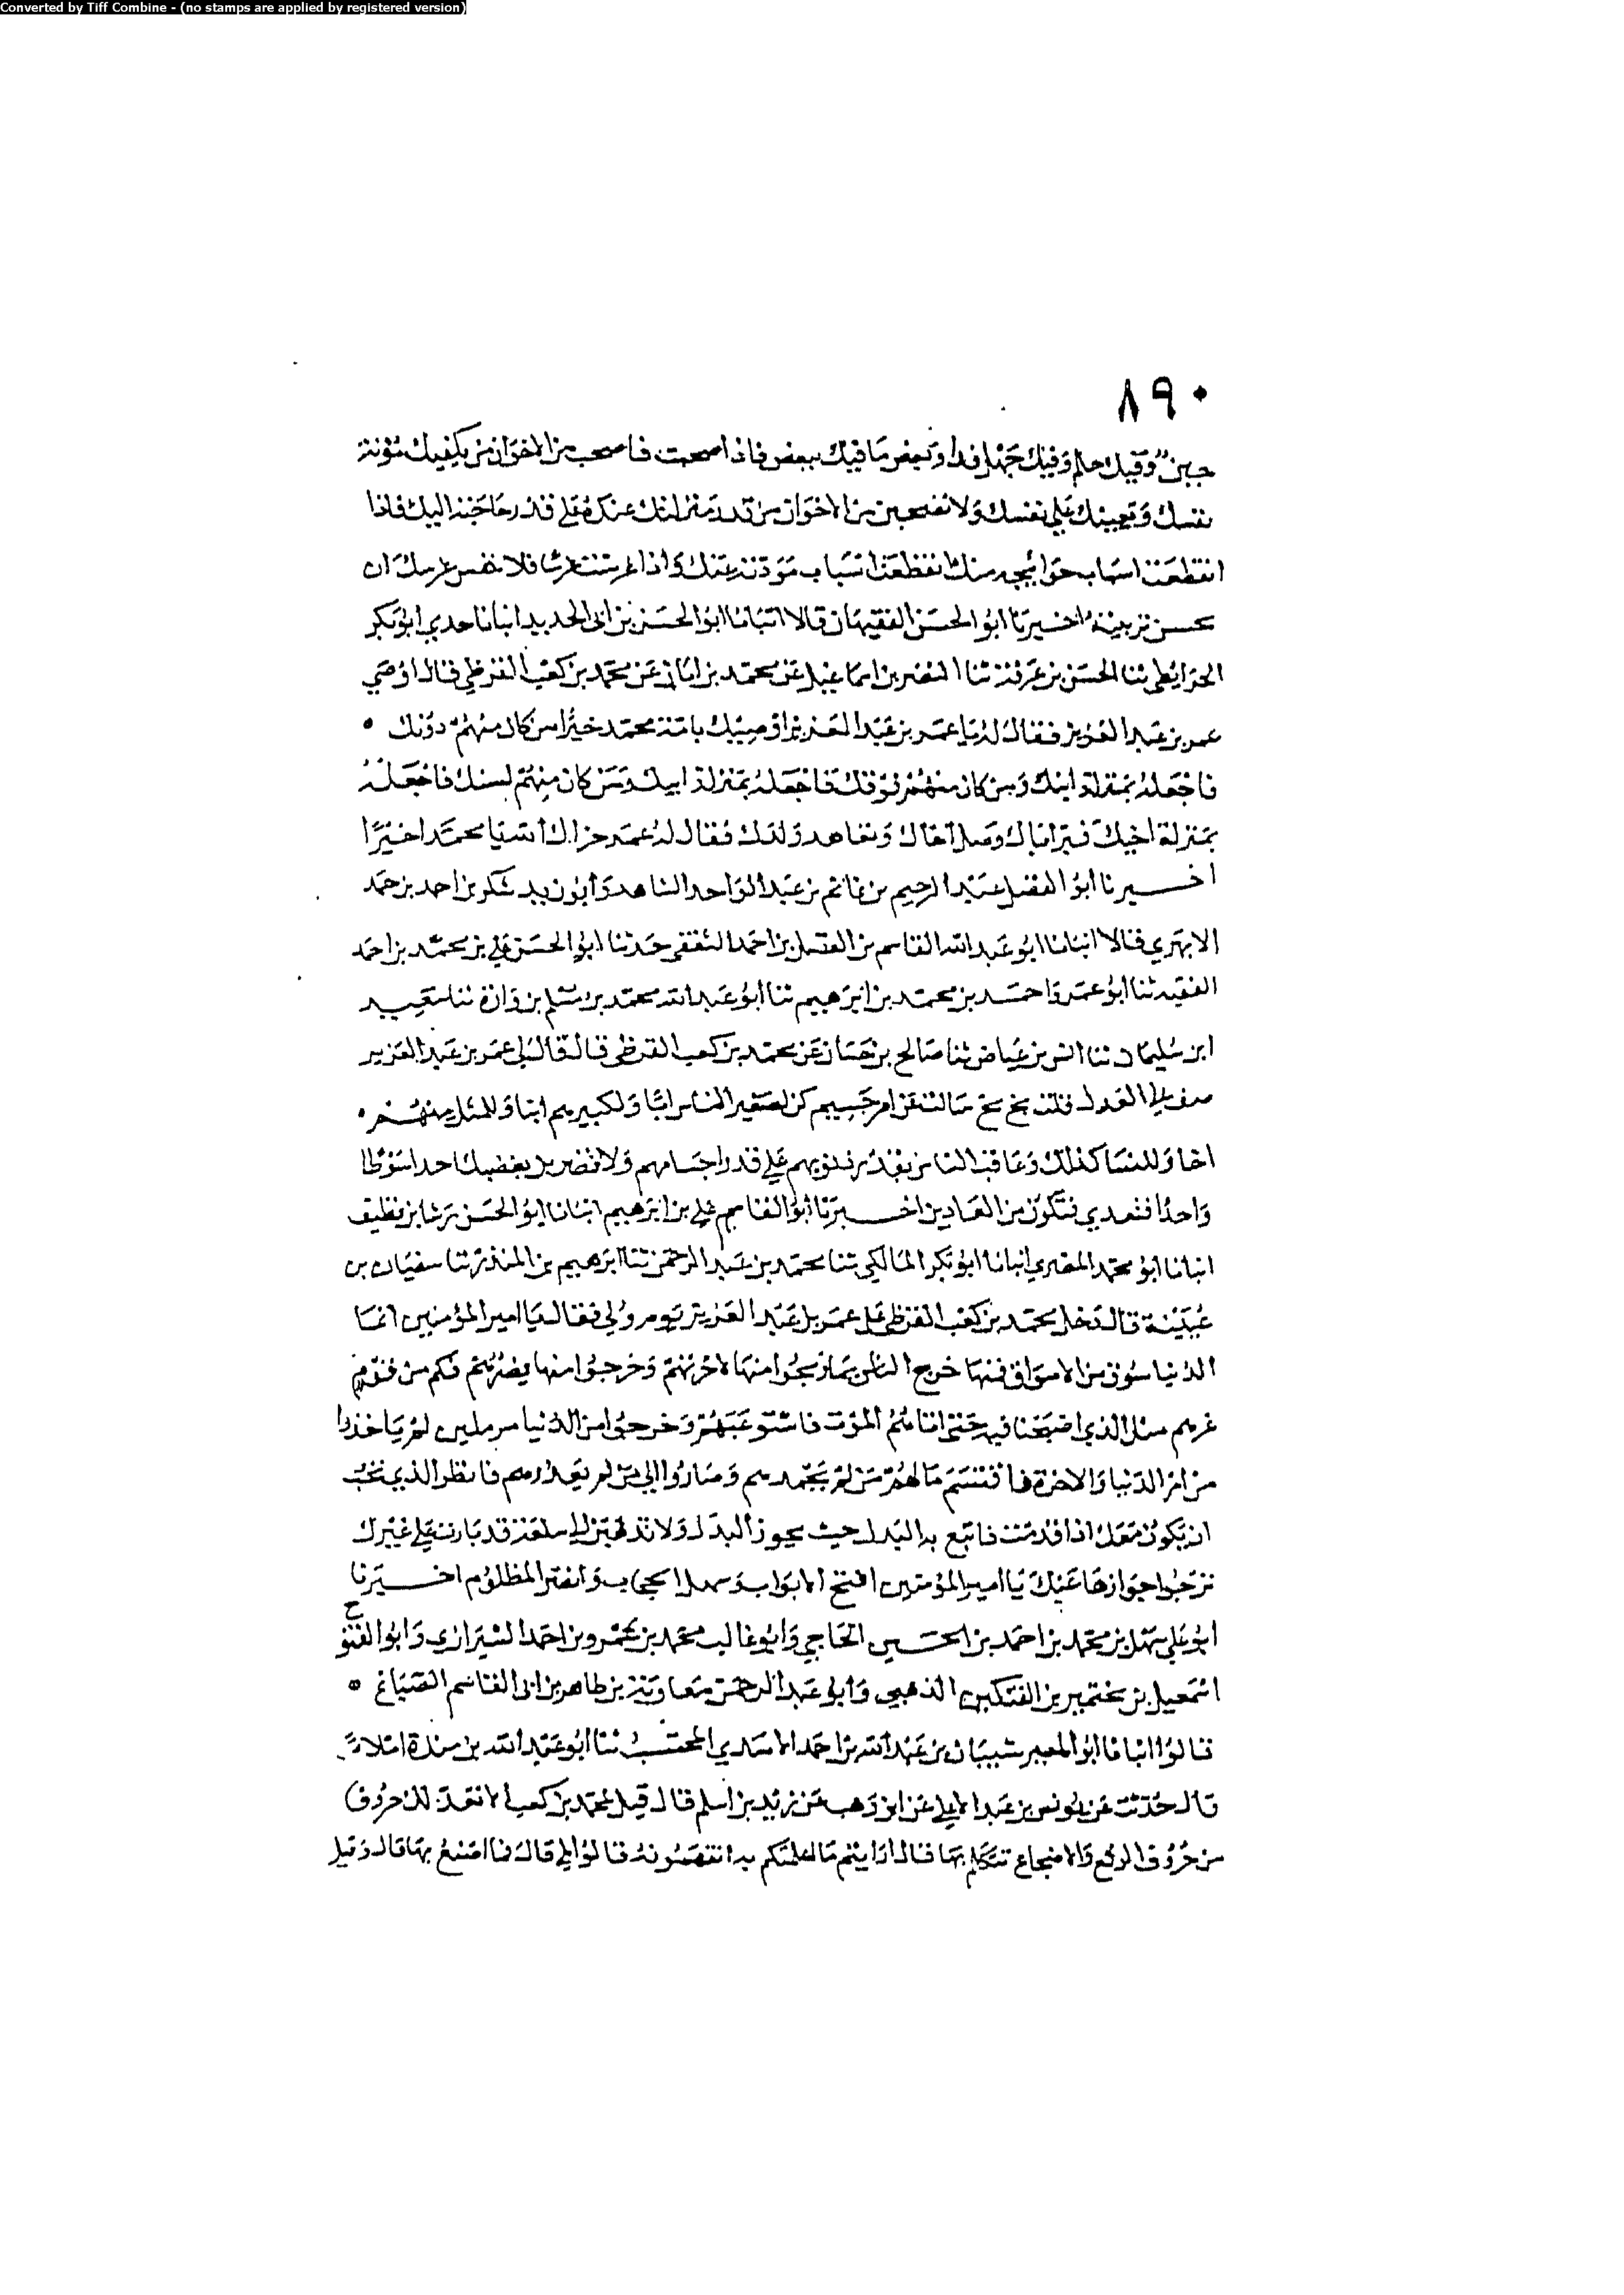 Converted by Tiff Combine - (no stamps are applied by registered version)
٨٩٠
جبن وفيك حلم وفيك جهل فداو بعض ما فيك ببعض فاذا صحبت فاصحب من الاخوان من يكفيك مؤنة
نفسك ويعينك على نفسك ولا تصحبن من الاخوان من قدر منزلتك عنده على قدر حاجته اليك فاذا
انقطعت اسباب حوائجه منك انقطعت اسباب مودته عنك واذا غرست غرسا فلا غرسك ان
تحسن تربيته اخبرنا ابو الحسن الفقيهان قالا انبانا ابو الحسن بن ابي الحديد انبانا جدي ابو بكر
الخرايطي ثنا الحسن بن عرفة ثنا النضر بن اسماعيل عن محمد بن ابان عن محمد بن كعب القرظي قال اوصى
عمر بن عبد العزيز فقال له يا عمر بن عبد العزيز اوصيك بامة محمد خيرا من كان منهم دونك
فاجعله بمنزلة ابنك ومن كان منهم فوقك فاجعله بمنزلة ابيك ومن كان منهم بسنك فاجعله
بمنزلة اخيك فبر اباك وصل اخاك وتعاهد ولدك فقال له عمر جزاك الله يا محمد خيرا
اخبرنا ابو الفضل عبد الرحيم بن غانم بن عبد الواحد الشاهد وابو زيد شكر بن احمد بن حمد
الابهري قالا انبانا ابو عبد الله القاسم بن الفضل بن احمد الثقفي حدثنا ابو الحسن علي بن محمد بن احمد
الفقيه ثنا ابو عمرو احمد بن محمد بن ابرهيم ثنا ابو عبد الله محمد بن مسلم بن وارة ثنا سعيد
ابن سليمان ثنا انس بن عياض ثنا صالح بن حسان عن محمد بن كعب القرظي قال قال لي عمر بن عبد العزيز
صف لي العدل فقلت بخ بخ سالت عن امر جسيم كن لصغير الناس ابا ولكبيرهم ابنا وللمثل منهم
اخا وللنسا كذلك وعاقب الناس بقدر ذنوبهم على قدر اجسامهم ولا تضربن بغضبك احدا سوطا
واحدا فتعدي فتكون من العادين اخبرنا ابو القاسم علي بن ابرهيم انبانا ابو الحسن رشا بن نظيف
انبانا ابو محمد المصري انبانا ابو بكر المالكي ثنا محمد بن عبد الرحمن ثنا ابرهيم بن المنذر ثنا سفيان بن
عيينة قال دخل محمد بن كعب القرظي على عمر بن عبد العزيز يوم ولي فقال يا امير المؤمنين انما
الدنيا سوق من الاسواق فمنها خرج الناس بما ربحوا منها لاخرتهم وخرجوا منها بما يضرهم فكم من قوم
غرهم مثل الذي اصبحنا فيه حتى اتاهم الموت فاستوعبهم وخرجوا من الدنيا مرملين لم ياخذوا
من امر الدنيا والاخرة فاقتسم مالهم من لم يحمدهم وصاروا الى من لم يعذرهم فانظر الذي تحب
ان يكون معك اذا قدمت فابتع به البدل حيث يجوز البدل ولا تذهبن الى سلعة قد بارت على غيرك
ترجوا جوازها عنك يا امير المؤمنين افتح الابواب وسهل الحجاب وانصر المظلوم اخبرنا
ابو علي سهل بن محمد بن احمد بن الحسين الحاجي وابو غالب محمد بن عمرو بن احمد الشيرازي وابو الفتوح
اسمعيل بن الذهبي وابو عبد الرحمن معاوية بن طاهر بن ابي القاسم الصباغ
قالوا انبانا ابو المعمر شيبان بن عبد الله بن احمد الاسدي المحتسب ثنا ابو عبد الله بن مندة املاء
قال حدثت عن يونس بن عبد الاعلى عن ابن وهب عن بن زيد بن اسلم قال قيل لمحمد بن كعب الا تعد للحروف
من حروف الرفع والاضجاع تتكلم بها قال ارايتم ما اعلمكم به اتفهمونه قالوا بلى قال فما اصنع بها قال وقيل